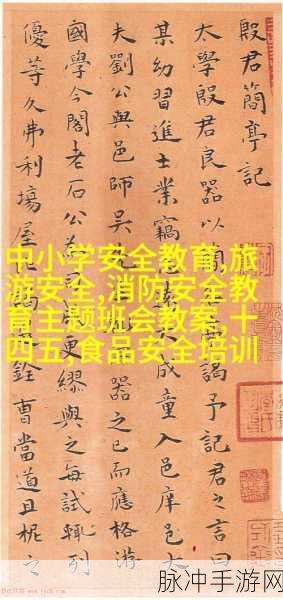 殷君簡亭記
太學殷君良器以謁予記君之言曰
某幼習進士業竊成童入邑庠邑大
夫劉公與邑師吳器之已而應格游
國學今閣老石公更繆與之每試輒列
優等久弗利場屋銓曹當道且柅之
中小学安全教育,旅
游安全,消防安全教
育主题班会教案,十
四五,食品安全培训
脉冲手游网